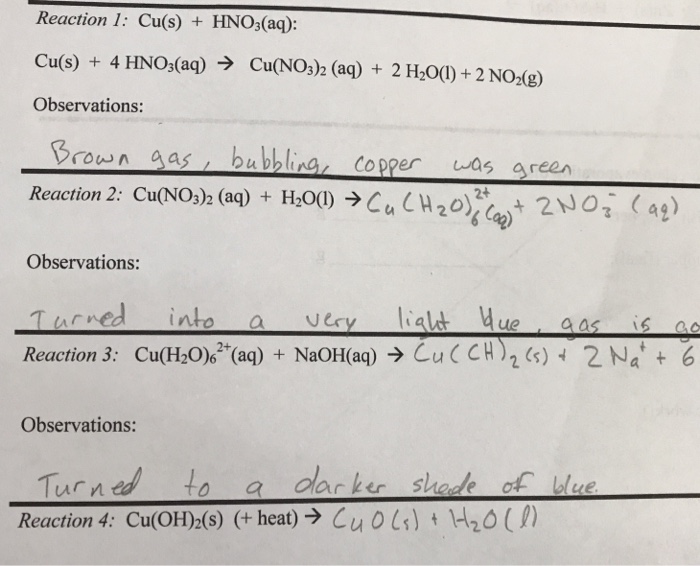 Reaction 1: Cu(s) + HNO₃(aq):
Cu(s) + 4 HNO₃(aq) → Cu(NO₃)₂ (aq) + 2 H₂O(l) + 2 NO₂(g)
Observations:
Brown gas, bubbling, copper was green
Reaction 2: Cu(NO₃)₂ (aq) + H₂O(l) → Cu(H₂O)₆²⁺(aq) + 2NO₃⁻ (aq)
Observations:
Turned into a very light blue, gas is go
Reaction 3: Cu(H₂O)₆²⁺(aq) + NaOH(aq) → Cu(CH)₂(s) + 2 Na⁺ + 6
Observations:
Turned to a darker shade of blue.
Reaction 4: Cu(OH)₂(s) (+ heat) → CuO(s) + H₂O(l)